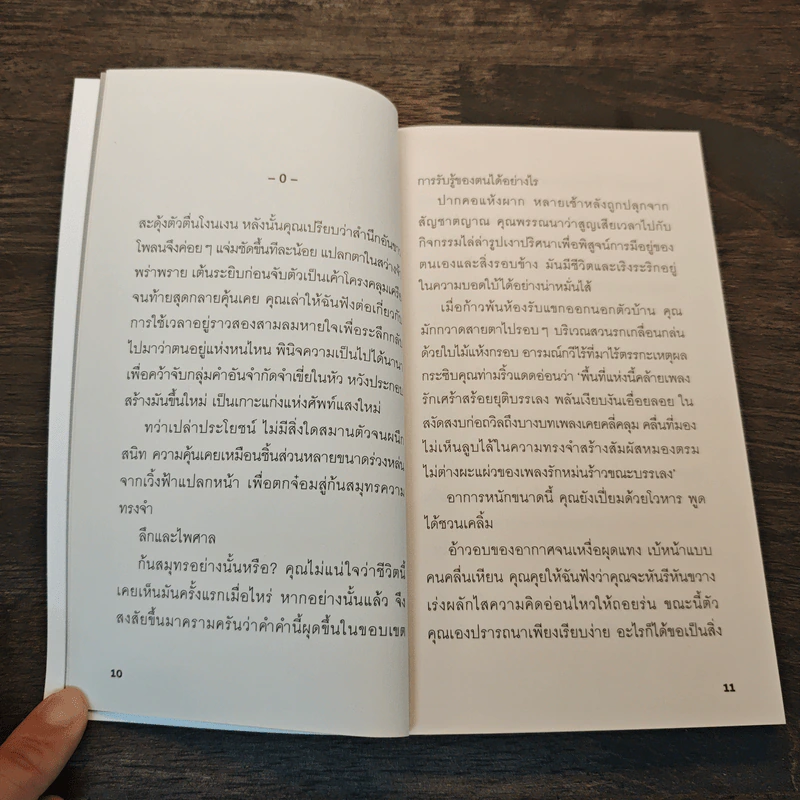 – 0 –
สะดุ้งตัวตื่นโงนเงน หลังนั้นคุณเปรียบว่าสำนึกอันขาว
โพลนจึงค่อยๆ แจ่มชัดขึ้นทีละน้อย แปลกตาในสว่างจ้า
พร่าพราย เต้นระยิบก่อนจับตัวเป็นเค้าโครงคลุมเครือ
จนท้ายสุดกลายคุ้นเคย คุณเล่าให้ฉันฟังต่อเกี่ยวกับ
การใช้เวลาอยู่ราวสองสามลมหายใจเพื่อระลึกกลับ
ไปมาว่าตนอยู่แห่งหนไหน พินิจความเป็นไปได้นานา
เพื่อคว้าจับกลุ่มคำอันจำกัดจำเขี่ยในหัว หวังประกอบ
สร้างมันขึ้นใหม่ เป็นเกาะแก่งแห่งศัพท์แสงใหม่
ทว่าเปล่าประโยชน์ ไม่มีสิ่งใดสมานตัวจนผนึก
สนิท ความคุ้นเคยเหมือนชิ้นส่วนหลายขนาดร่วงหล่น
จากเวิ้งฟ้าแปลกหน้า เพื่อตกจ๋อมสู่ก้นสมุทรความ
ทรงจำ
ลึกและไพศาล
ก้นสมุทรอย่างนั้นหรือ? คุณไม่แน่ใจว่าชีวิตนี้
เคยเห็นมันครั้งแรกเมื่อไหร่ หากอย่างนั้นแล้ว จึง
สงสัยขึ้นมาครามครันว่าคำคำนี้ผุดขึ้นในขอบเขต
10
การรับรู้ของตนได้อย่างไร
ปากคอแห้งผาก หลายเช้าหลังถูกปลุกจาก
สัญชาตญาณ คุณพรรณนาว่าสูญเสียเวลาไปกับ
กิจกรรมไล่ล่ารูปเงาปริศนาเพื่อพิสูจน์การมีอยู่ของ
ตนเองและสิ่งรอบข้าง มันมีชีวิตและเริงระริกอยู่
ในความบอดใบ้ได้อย่างน่าหมั่นไส้
เมื่อก้าวพ้นห้องรับแขกออกนอกตัวบ้าน คุณ
มักกวาดสายตาไปรอบๆ บริเวณสวนรกเกลื่อนกล่น
ด้วยใบไม้แห้งกรอบ อารมณ์กวีไร้ที่มาไร้ตรรกะเหตุผล
กระซิบคุณท่ามริ้วแดดอ่อนว่า ‘พื้นที่แห่งนี้คล้ายเพลง
รักเศร้าสร้อยยุติบรรเลง พลันเงียบงันเอื่อยลอย ใน
สงัดสงบก่อถวิลถึงบางบทเพลงเคยคลี่คลุม คลื่นที่มอง
ไม่เห็นลูบไล้ในความทรงจำสร้างสัมผัสหมองตรม
ไม่ต่างผะแผ่วของเพลงรักหม่นร้าวขณะบรรเลง’
อาการหนักขนาดนี้ คุณยังเปี่ยมด้วยโวหาร พูด
ได้ชวนเคลิ้ม
อ้าวอบของอากาศจนเหงื่อผุดแทง เบ้หน้าแบบ
คนคลื่นเหียน คุณคุยให้ฉันฟังว่าคุณจะหันรีหันขวาง
เร่งผลักไสความคิดอ่อนไหวให้ถอยร่น ขณะนี้ตัว
คุณเองปรารถนาเพียงเรียบง่าย อะไรก็ได้ขอเป็นสิ่ง
11